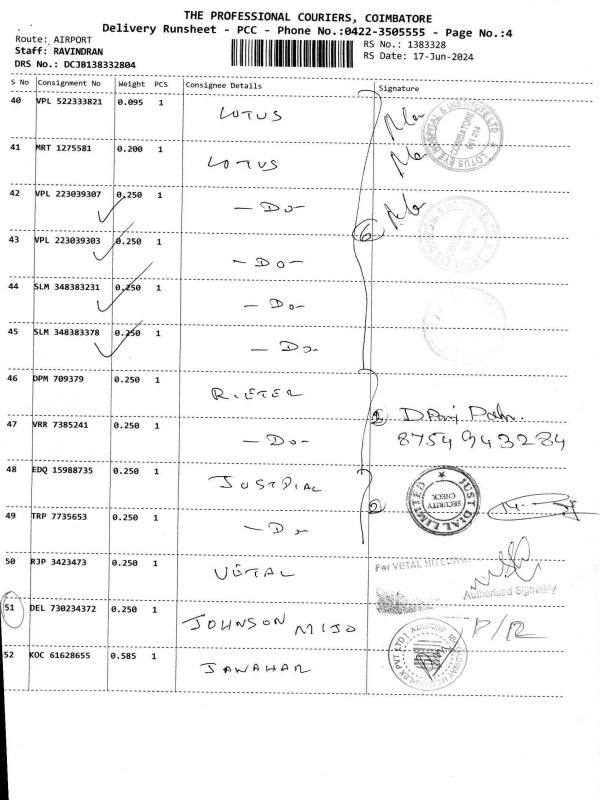 THE PROFESSIONAL COURIERS, COIMBATORE
Delivery Runsheet - PCC - Phone No.:0422-3505555 - Page No.:4
Route: AIRPORT
RS No.: 1383328
Staff: RAVINDRAN
RS Date: 17-Jun-2024
DRS No.: DCJB138332804
S No Consignment No Weight PCS Consignee Details Signature
40 VPL 522333821 0.095 1 LOTUS
41 MRT 1275581 0.200 1 LOTUS
42 VPL 223039307 0.250 1 - Do -
43 VPL 223039303 0.250 1 - Do -
44 SLM 348383231 0.250 1 - Do -
45 SLM 348383378 0.250 1 - Do -
6
46 DPM 709379 0.250 1 RIETER
47 VRR 7385241 0.250 1 - Do -
8754943284
48 EDQ 15988735 0.250 1 JUSTDIAL
2
JUST DIAL LIMITED
SECURITY CHECK
49 TRP 7735653 0.250 1 - Do -
50 RJP 3423473 0.250 1 VETAL
For VETAL
Authorised Signatory
51 DEL 730234372 0.250 1 JOHNSON MIJO
52 KOC 61628655 0.585 1 JAWAHAR